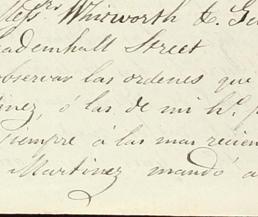 Messrs Whitworth & Ge
Leadenhall Street
observar las ordenes que
inez, ó las de mi hº. p
siempre á las mas recien
Martinez mandó a